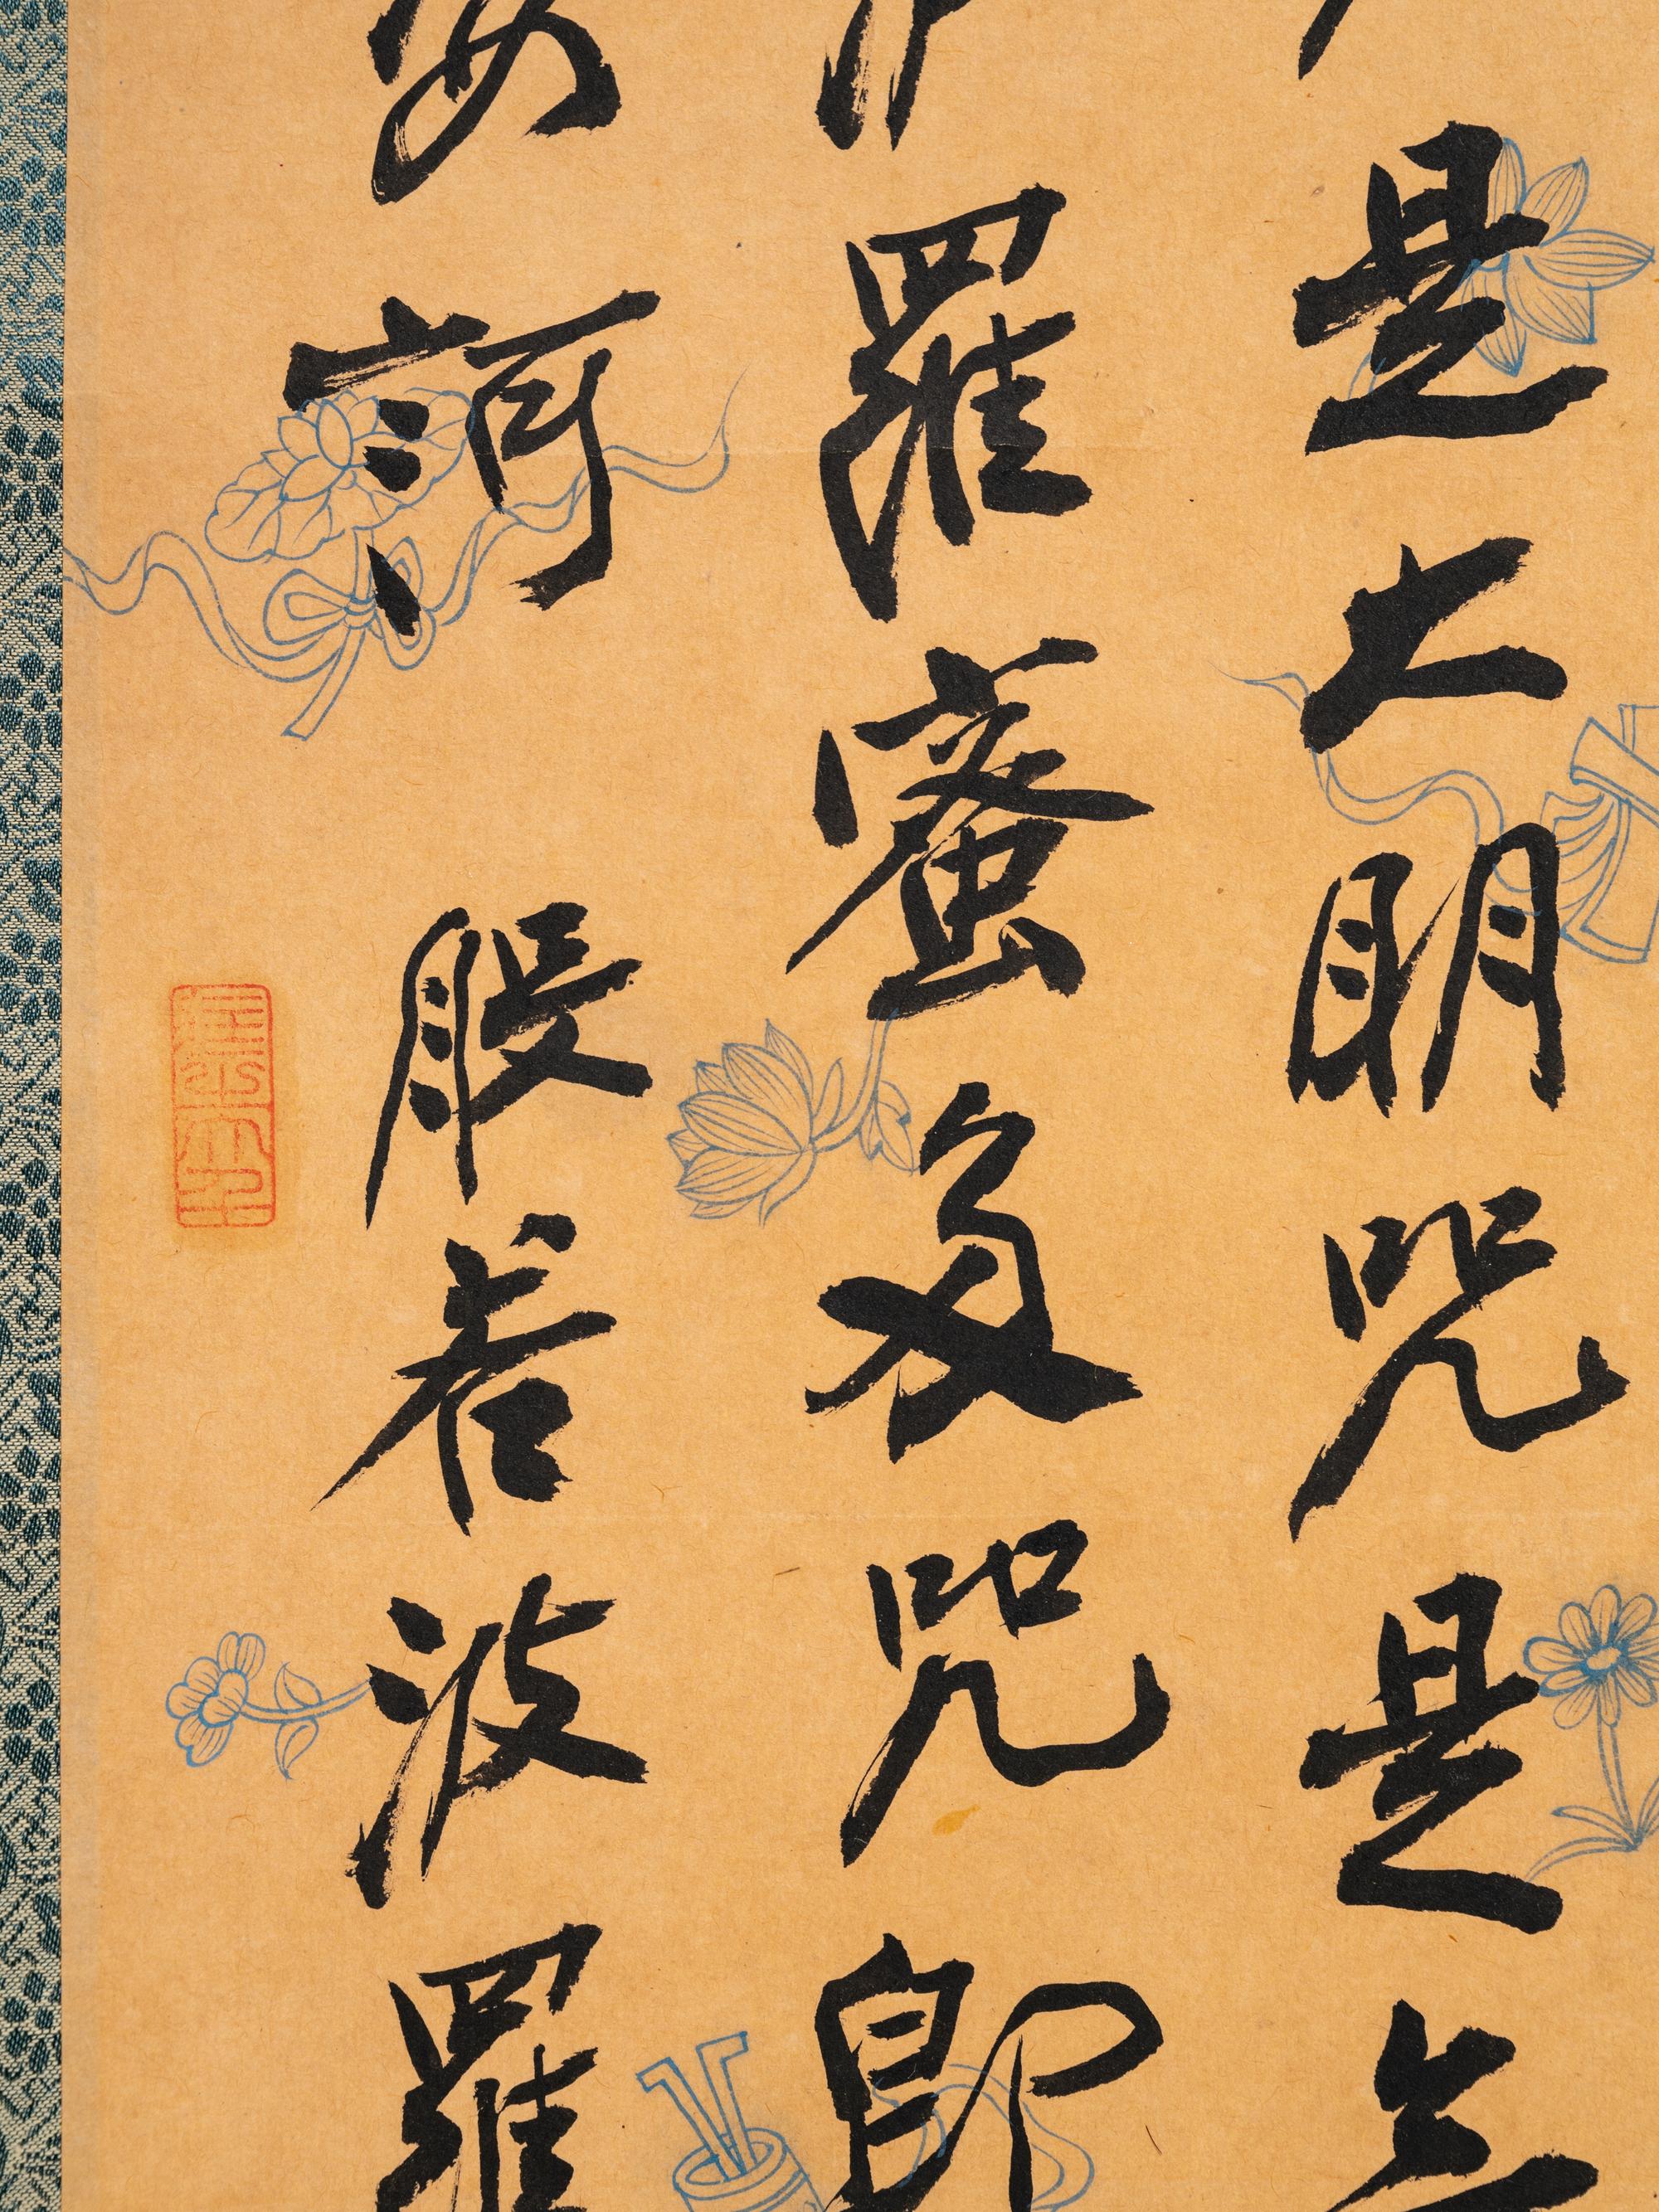 是大明咒是無
羅蜜多咒即
訶 般若波羅